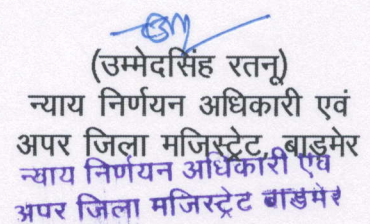 (उम्मेदसिंह रतनू)
न्याय निर्णयन अधिकारी एवं
अपर जिला मजिस्ट्रेट, बाड़मेर
न्याय निर्णयन अधिकारी एवं
अपर जिला मजिस्ट्रेट बाडमेर